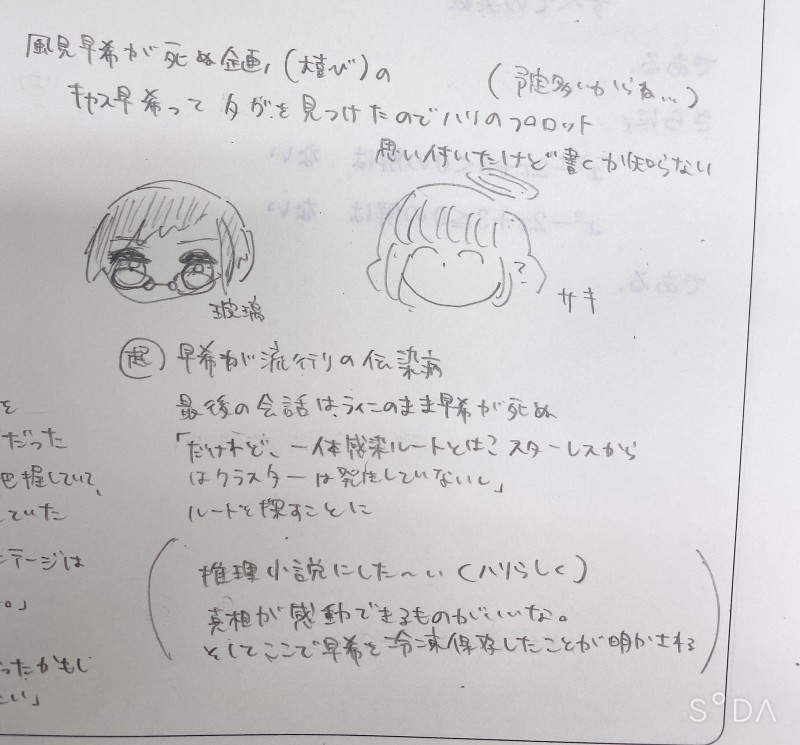 風見早希が死ぬ企画,(大喜び)の
(予定多いからね…)
キャス早希ってタグを見つけたのでハリのプロット
思い付いたけど書くか知らない
玻璃
?
サキ
起 早希が流行りの伝染病
最後の会話は、ラインのまま早希が死ぬ
「だけれど、一体感染ルートとは? スターレスから
はクラスターは発生していないし」
ルートを探すことに
推理小説にした〜い(ハリらしく)
真相が感動できるものがいいな。
そしてここで早希を冷凍保存したことが明かされる
を
だった
把握していて、
していた
ステージは
。」
ったかもし
い」
SODA